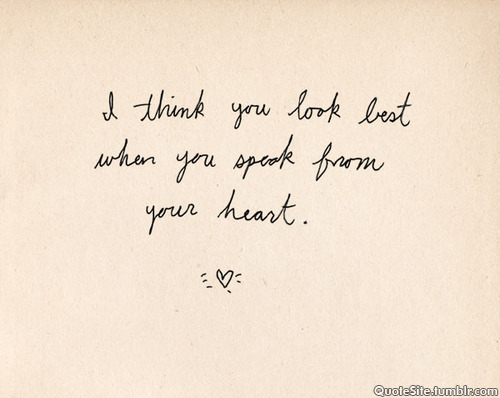 I think you look best
when you speak from
your heart.
QuoteSite.tumblr.com